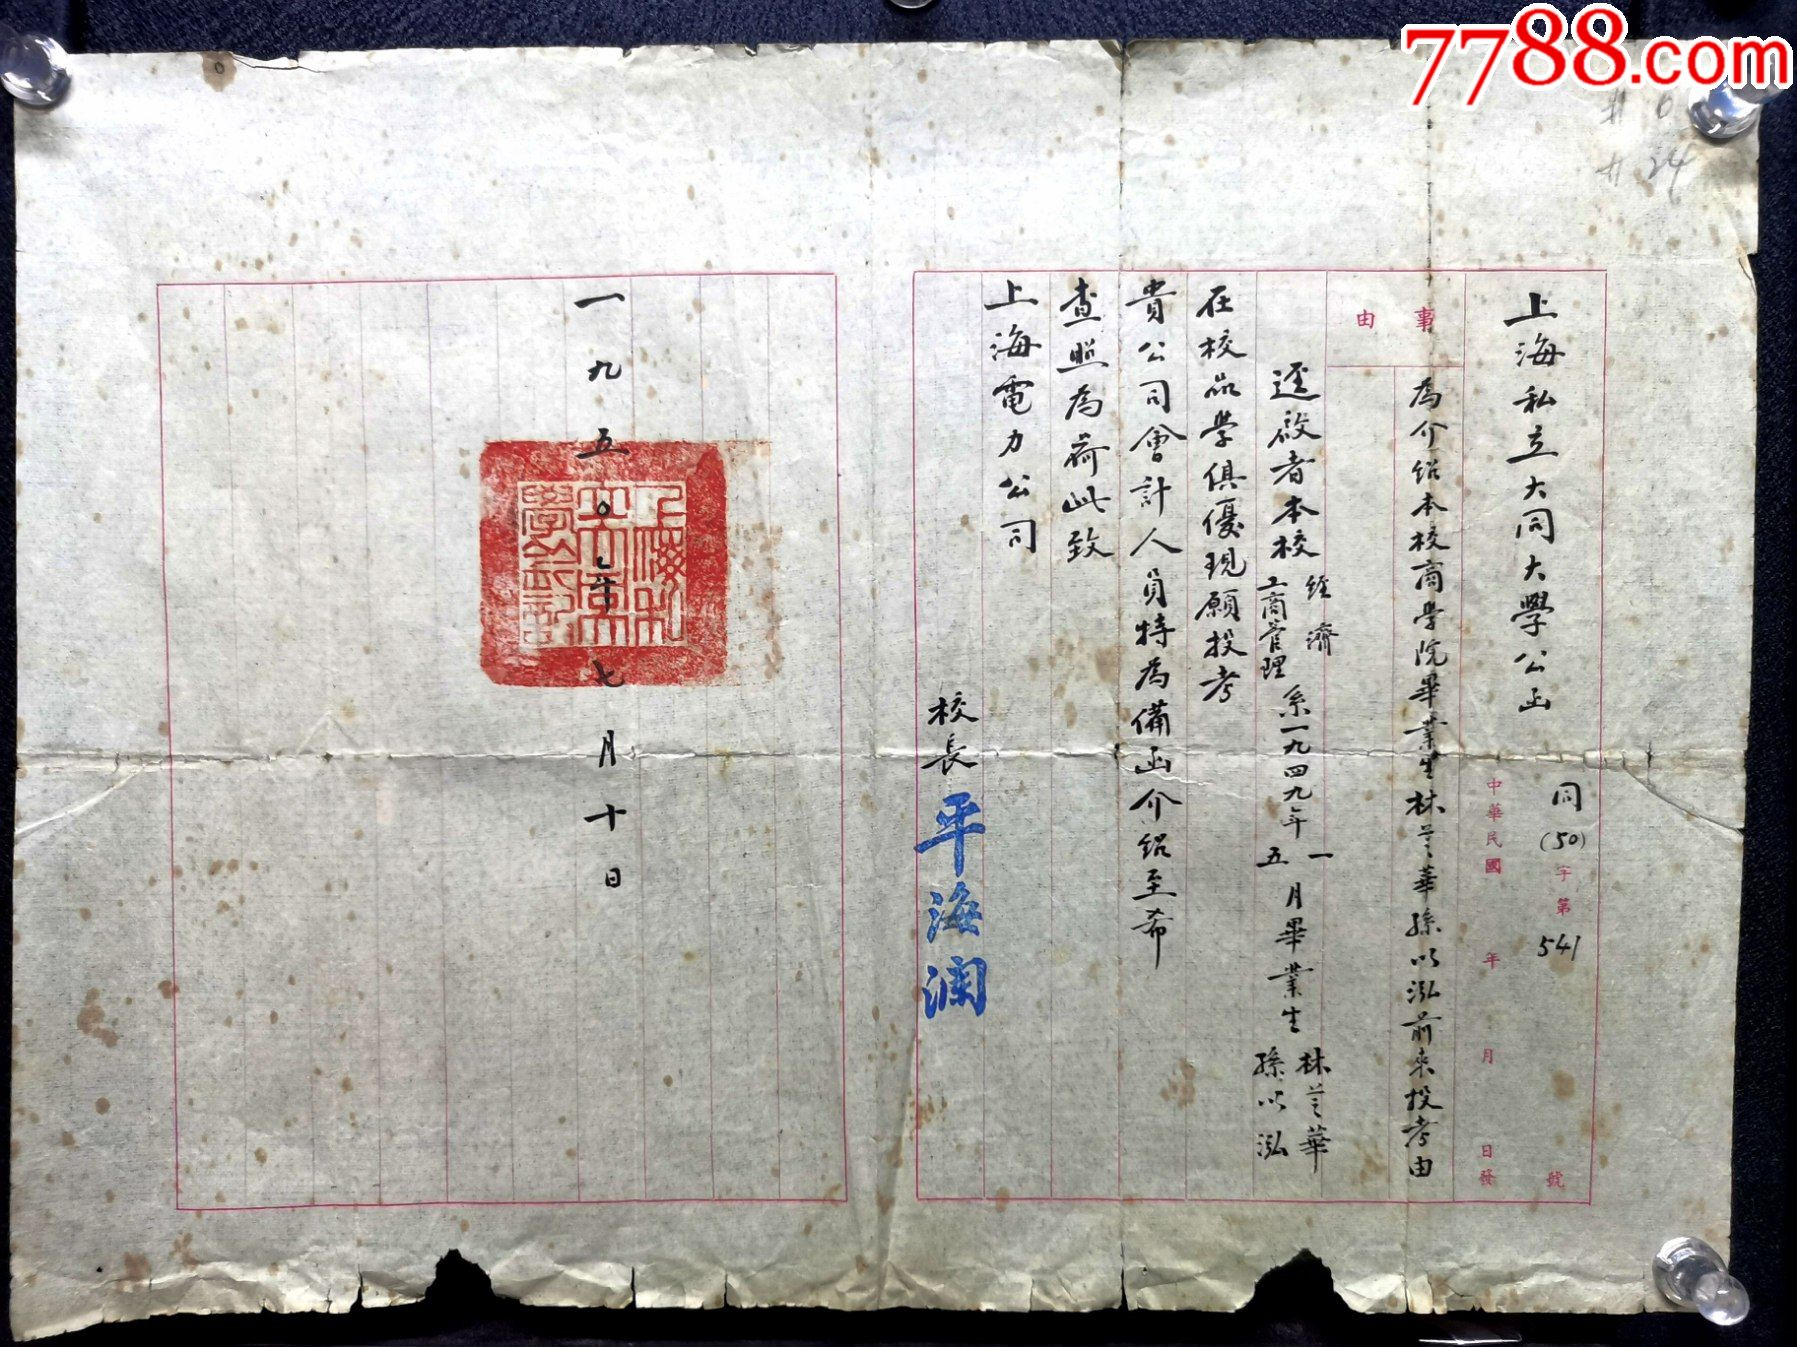 7788.com
24
上海私立大同大學公函
同(50)字第541號
中華民國 年 月 日發
事由
為介紹本校商學院畢業生林蘭華孫以泓前來投考由
逕啟者本校經濟工商管理系一九四九年一五月畢業生林蘭華孫以泓
在校品學俱優現願投考
貴公司會計人員特為備函介紹至希
查照為荷此致
上海電力公司
校長 平海瀾
一九五〇年七月十日